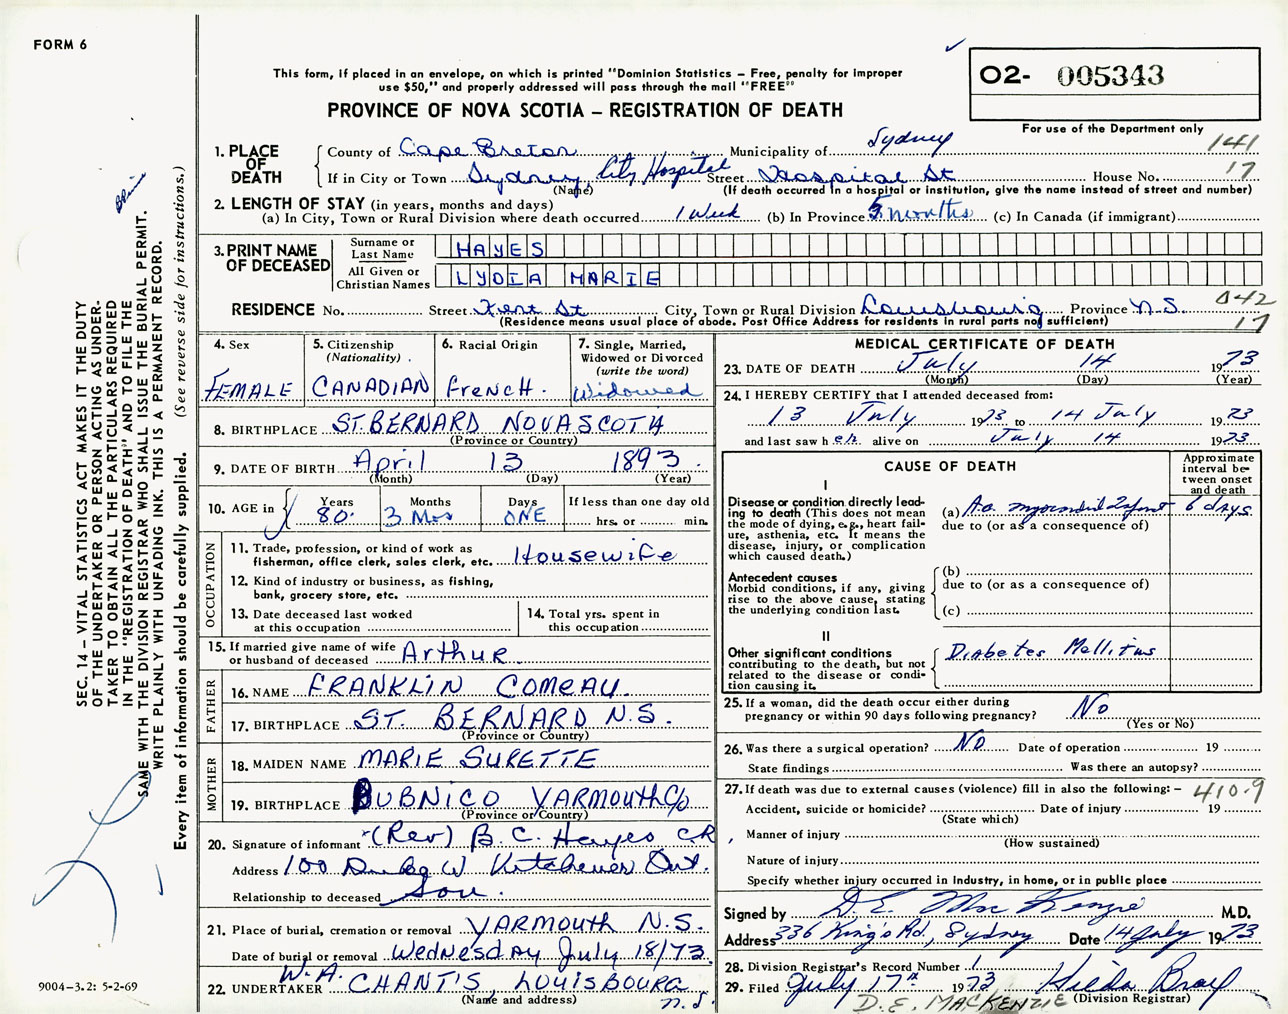 FORM 6
This form, if placed in an envelope, on which is printed "Dominion Statistics – Free, penalty for improper
use $50," and properly addressed will pass through the mail "FREE"
PROVINCE OF NOVA SCOTIA – REGISTRATION OF DEATH
O2- 005343
For use of the Department only
141
17
1. PLACE OF DEATH
County of Cape Breton Municipality of Sydney
If in City or Town Sydney City Hospital Street Hospital St House No.
(Name) (If death occurred in a hospital or institution, give the name instead of street and number)
2. LENGTH OF STAY (in years, months and days)
(a) In City, Town or Rural Division where death occurred 1 Week (b) In Province 5 months (c) In Canada (if immigrant)
3. PRINT NAME OF DECEASED
Surname or Last Name HAYES
All Given or Christian Names LYDIA MARIE
RESIDENCE No. Street Kent St City, Town or Rural Division Louisbourg Province N.S.
042
17
(Residence means usual place of abode. Post Office Address for residents in rural parts not sufficient)
4. Sex FEMALE
5. Citizenship (Nationality) CANADIAN
6. Racial Origin French.
7. Single, Married, Widowed or Divorced (write the word) Widowed
8. BIRTHPLACE ST. BERNARD NOVA SCOTIA
(Province or Country)
9. DATE OF BIRTH April 13 1893.
(Month) (Day) (Year)
10. AGE in Years 80. Months 3 Mos Days ONE If less than one day old hrs. or min.
OCCUPATION
11. Trade, profession, or kind of work as
fisherman, office clerk, sales clerk, etc. Housewife
12. Kind of industry or business, as fishing,
bank, grocery store, etc.
13. Date deceased last worked
at this occupation
14. Total yrs. spent in
this occupation
15. If married give name of wife
or husband of deceased Arthur.
FATHER
16. NAME FRANKLIN COMEAU.
17. BIRTHPLACE ST. BERNARD N.S.
(Province or Country)
MOTHER
18. MAIDEN NAME MARIE SURETTE
19. BIRTHPLACE PUBNICO YARMOUTH Co
(Province or Country)
20. Signature of informant (Rev) B. C. Hayes C.R,
Address 100 W Kitchener Ont.
Relationship to deceased Son.
21. Place of burial, cremation or removal YARMOUTH N.S.
Date of burial or removal Wednesday July 18/73.
22. UNDERTAKER W.A. CHANT'S, LOUISBOURG N.S.
(Name and address)
MEDICAL CERTIFICATE OF DEATH
23. DATE OF DEATH July 14 1973
(Month) (Day) (Year)
24. I HEREBY CERTIFY that I attended deceased from:
13 July 1973 to 14 July 1973
and last saw her alive on July 14 1973
CAUSE OF DEATH
Approximate interval between onset and death
I
Disease or condition directly lead-
ing to death (This does not mean
the mode of dying, e.g., heart fail-
ure, asthenia, etc. It means the
disease, injury, or complication
which caused death.)
(a) Ac. myocardial Infarct 6 days
due to (or as a consequence of)
Antecedent causes
Morbid conditions, if any, giving
rise to the above cause, stating
the underlying condition last.
(b)
due to (or as a consequence of)
(c)
II
Other significant conditions
contributing to the death, but not
related to the disease or condi-
tion causing it.
Diabetes Mellitus
25. If a woman, did the death occur either during
pregnancy or within 90 days following pregnancy? No
(Yes or No)
26. Was there a surgical operation? No Date of operation 19
State findings Was there an autopsy?
27. If death was due to external causes (violence) fill in also the following: – 410.9
Accident, suicide or homicide? Date of injury 19
(State which)
Manner of injury
(How sustained)
Nature of injury
Specify whether injury occurred in industry, in home, or in public place
Signed by D.E. MacKenzie M.D.
Address 336 King's Rd., Sydney Date 14 July 1973
28. Division Registrar's Record Number 1
29. Filed July 17th 1973 Hilda Bray
(Division Registrar)
D.E. MACKENZIE
SEC. 14 – VITAL STATISTICS ACT MAKES IT THE DUTY
OF THE UNDERTAKER OR PERSON ACTING AS UNDER-
TAKER TO OBTAIN ALL THE PARTICULARS REQUIRED
IN THE "REGISTRATION OF DEATH" AND TO FILE THE
SAME WITH THE DIVISION REGISTRAR WHO SHALL ISSUE THE BURIAL PERMIT.
WRITE PLAINLY WITH UNFADING INK. THIS IS A PERMANENT RECORD.
Every item of information should be carefully supplied. (See reverse side for instructions.)
9004–3.2: 5-2-69